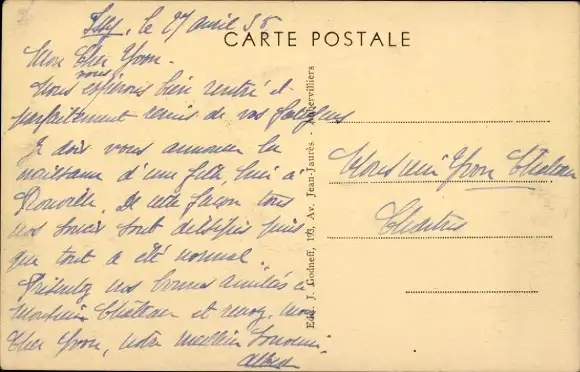 Issy, le 27 avril 35
CARTE POSTALE
Mon Cher Yvon.
nous
Nous espérons bien rentré et
parfaitement remis de vos fatigues
Je dois vous annoncer la
naissance d'une fille, hier à
De cette façon tous
nos soucis sont dissipés puis
que tout a été normal.
Présentez nos bonnes amitiés à
Monsieur Château et recevez, mon
Cher Yvon, notre meilleur souvenir.
Albert
Edit. J. Godneff, 193, Av. Jean-Jaurès - Aubervilliers
Monsieur Yvon Château
Chartres